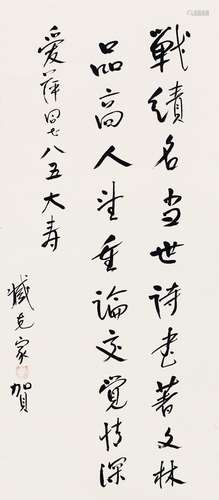 戰績名当世詩书著文林
品高人望重論交覺情深
爱萍同志八五大寿
臧克家賀